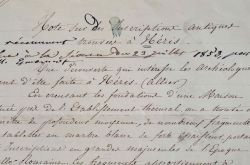 Note sur des inscriptions antiques
récemment trouvées à Néris
lue à la séance du 23 juillet 1853, par
M.
Une découverte qui intéresse les archéologues
vient d'être faite à Néris (Allier)
En creusant les fondations d'une Maison
que de l'Etablissement thermal, on a trouvé
mètre de profondeur moyenne, de nombreux fragments
tables en marbre blanc de fort épaisseur, portant
Inscriptions en grandes majuscules de l'Epoque
Gallo Romaine. Les fragments